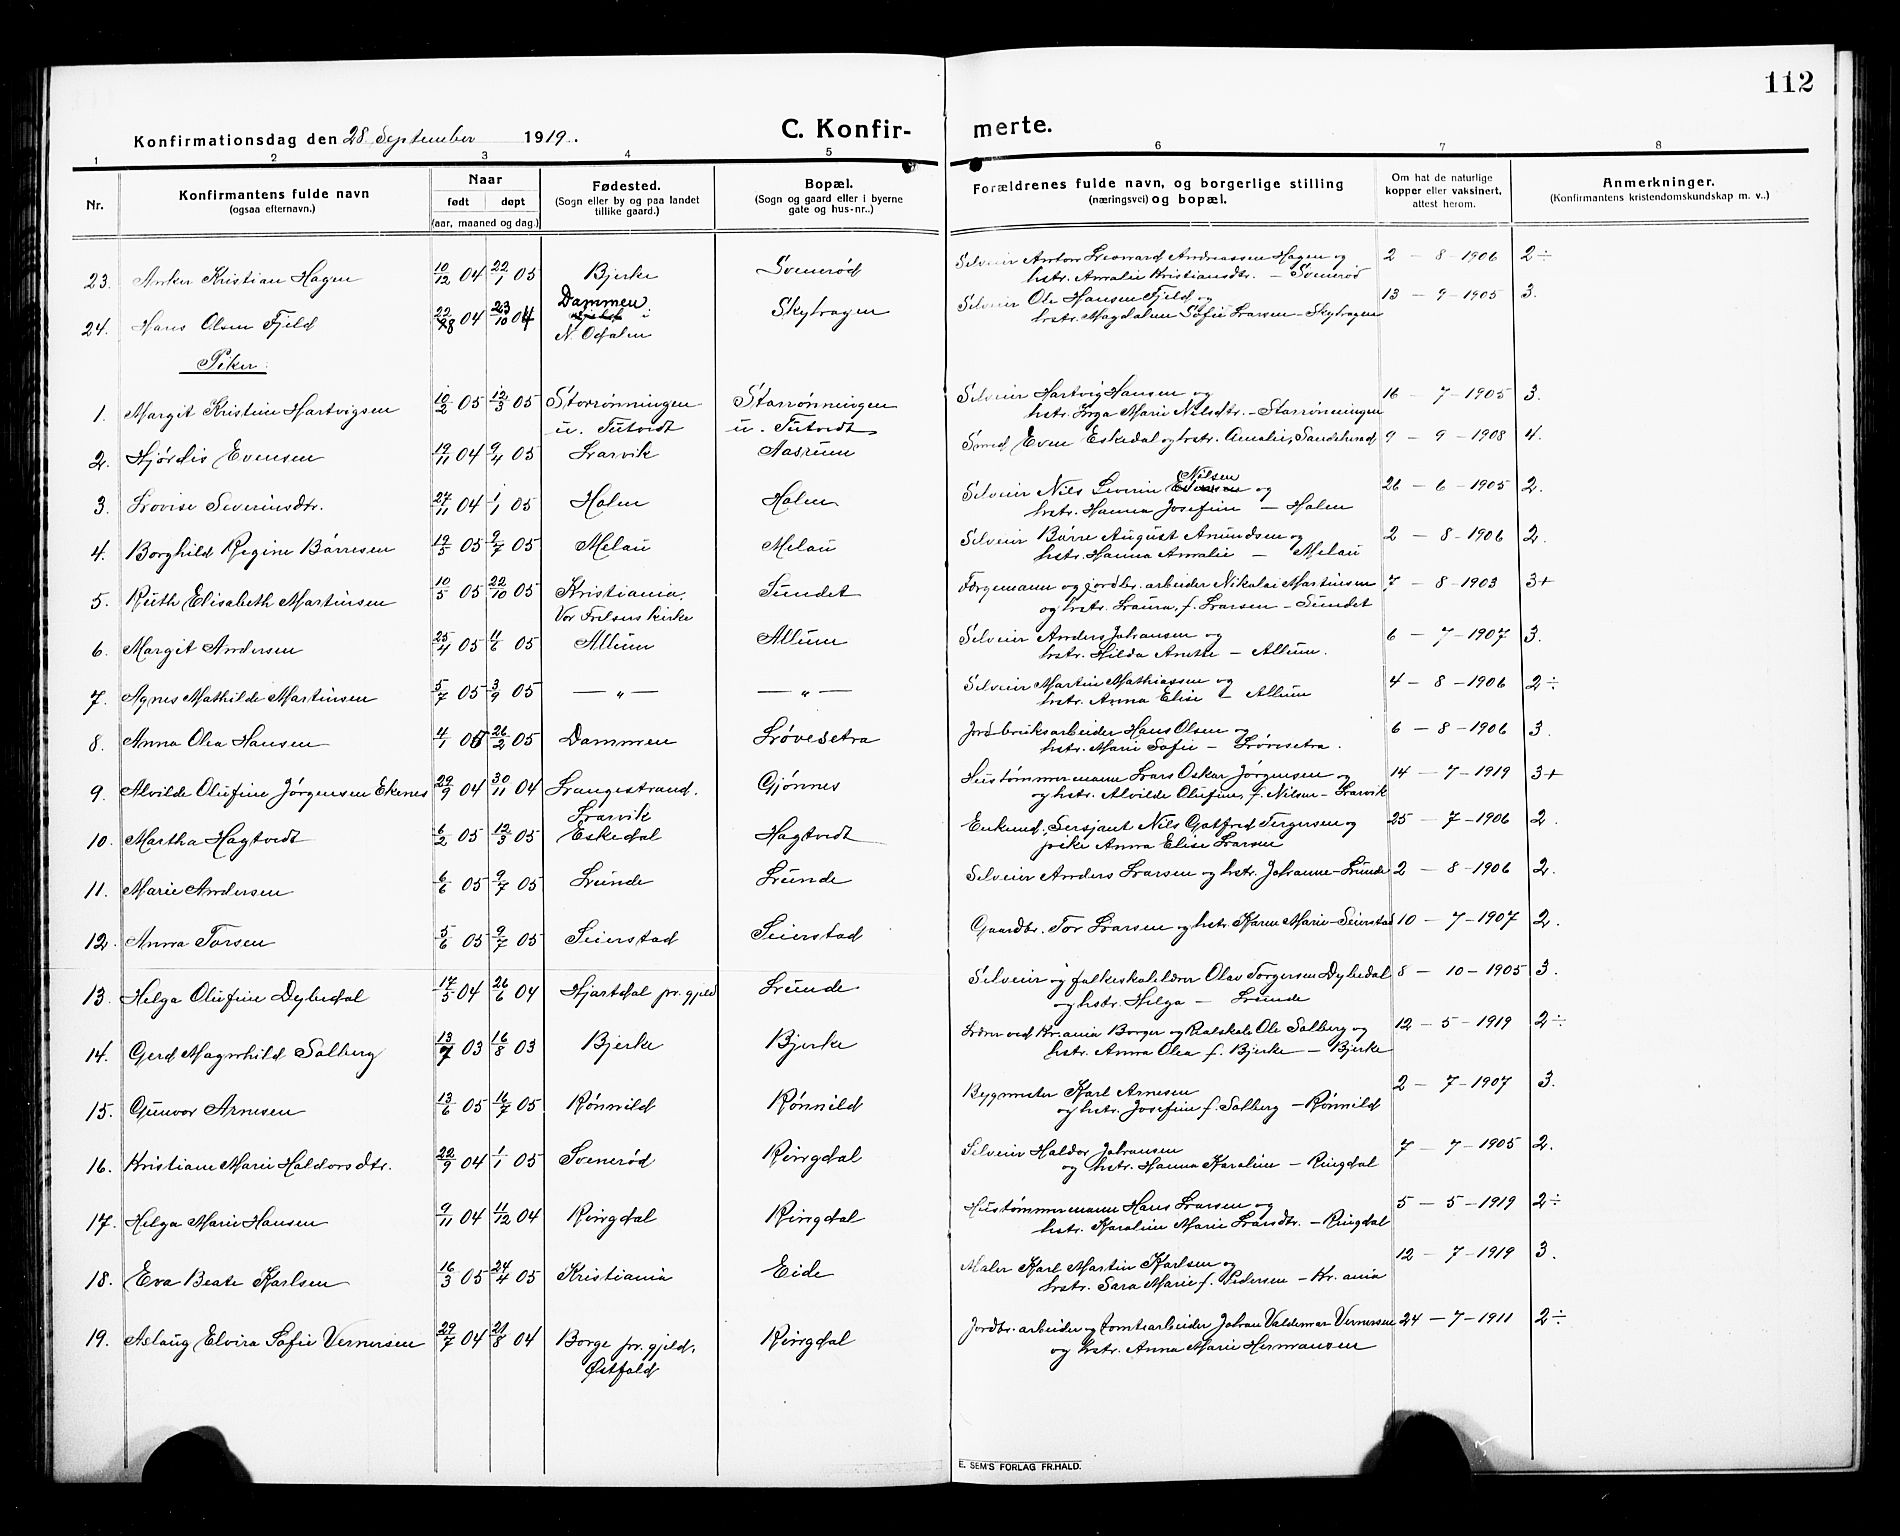 112
Konfirmationsdag den 28 September 1919.
C. Konfir-
merte.
1 2 3 4 5 6 7 8
Nr.
Konfirmantens fulde navn
(ogsaa efternavn.)
Naar
født døpt
(aar, maaned og dag.)
Fødested.
(Sogn eller by og paa landet
tillike gaard.)
Bopæl.
(Sogn og gaard eller i byerne
gate og hus-nr..)
Forældrenes fulde navn, og borgerlige stilling
(næringsvei) og bopæl.
Om hat de naturlige
kopper eller vaksinert,
attest herom.
Anmerkninger.
(Konfirmantens kristendomskundskap m. v..)
23. Anker Kristian Hagen 10/12 04 22/1 05 Bjerke Svenerød Selveier Anton Leonard Andreassen Hagen og 2 - 8 - 1906 2÷
hstr. Amalie Kristiansdtr. - Svenerød
24. Hans Olsen Fjeld 22/8 04 23/10 04 Dammen i Skytragen Selveier Ole Hansen Fjeld og 13 - 9 - 1905 3.
N. Odalen hstr. Magdalene Sofie Larsen - Skytragen
Piker:
1. Margit Kristine Hartvigsen 10/2 05 12/3 05 Storrønningen Storrønningen Selveier Hartvig Hansen og 16 - 7 - 1905 3.
u. Tutvedt u. Tutvedt hstr. Inga Marie Nilsdtr. - Storrønningen
2. Hjørdis Evensen 19/11 04 9/4 05 Larvik Aasrum Smed Even Eskedal og hstr. Amalie, Sandehered 9 - 9 - 1908 4.
3. Lovise Severinsdtr. 27/11 04 1/1 05 Holen Holen Selveier Nils Severin Nilsen og 26 - 6 - 1905 2.
hstr. Hanna Josefine - Holen
4. Borghild Regine Børresen 19/5 05 9/7 05 Melau Melau Selveier Børre August Amundsen og 2 - 8 - 1906 2.
hstr. Hanna Amalie - Melau
5. Ruth Elisabeth Martinsen 10/5 05 22/10 05 Kristiania, Sundet Færgemann og jordbr. arbeider Nikolai Martinsen 7 - 8 - 1903 3+
Vor Frelsers kirke og hstr. Laura, f. Larsen - Sundet
6. Margit Andersen 25/4 05 11/6 05 Allum Allum Selveier Anders Johansen og 6 - 7 - 1907 3.
hstr. Hilda Anette - Allum.
7. Agnes Mathilde Martinsen 5/7 05 3/9 05 - " - - " - Selveier Martin Mathiassen og 4 - 8 - 1906 2÷
hstr. Anna Elise - Allum
8. Anna Olea Hansen 4/1 05 26/2 05 Dammen Løvesetra Jordbruksarbeider Hans Olsen og 6 - 8 - 1906 3.
hstr. Marie Sofie - Løvesetra.
9. Alvilde Olufine Jørgensen Ekenes 29/9 04 30/11 04 Langestrand. Gjønnes Hustømmermann Lars Oskar Jørgensen og 14 - 7 - 1919 3+
Larvik og hstr. Alvilde Olufine, f. Nilsen - Larvik
10. Martha Hagtvedt 6/2 05 12/3 05 Eskedal Hagtvedt Enkemd, Sersjant Nils Gotfred Tergersen og 25 - 7 - 1906 2.
pike Anna Elise Larsen
11. Marie Andersen 6/6 05 9/7 05 Lunde Lunde Selveier Anders Larsen og hstr. Johanne - Lunde 2 - 8 - 1906 2.
12. Anna Torsen 5/6 05 9/7 05 Seierstad Seierstad Gaardbr. Tor Larsen og hstr. Karen Marie - Seierstad 10 - 7 - 1907 2.
13. Helga Olufine Dybedal 17/5 04 26/6 04 Hjartdal pr.gjeld Lunde Selveier og folkeskolelærer Olav Torgersen Dybedal 8 - 10 - 1905 3.
og hstr. Helga - Lunde
14. Gerd Magnhild Solberg 13/7 03 16/8 03 Bjerke Bjerke Lærer ved Kr.ania Borger og Realskole Ole Solberg og 12 - 5 - 1919 2÷
hstr. Anna Olea f. Bjerke - Bjerke
15. Gunvor Arnesen 13/6 05 16/7 05 Rønnild Rønnild Bygmester Karl Arnesen 2 - 7 - 1907 3.
og hstr. Josefine f. Solberg - Rønnild
16. Kristiane Marie Haldorsdtr. 22/9 04 1/1 05 Svenerød Ringdal Selveier Haldor Johansen 7 - 7 - 1905 2.
og hstr. Hanna Karoline - Ringdal
17. Helga Marie Hansen 9/11 04 11/12 04 Ringdal Ringdal Hustømmermann Hans Larsen og 5 - 5 - 1919 2÷
hstr. Karoline Marie Larsdtr. - Ringdal
18. Eva Beate Karlsen 16/3 05 24/4 05 Kristiania Eide Maler Karl Martin Karlsen og 12 - 7 - 1919 3.
hstr. Sara Marie f. Pedersen - Kr.ania
19. Aslaug Elvira Sofie Vernersen 29/7 04 21/8 04 Borge pr.gjeld, Ringdal Jordbr. arbeider og tomtearbeider Johan Valdemar Vernersen 24 - 7 - 1911 2÷
Østfold og hstr. Anna Marie Hermansen
E. SEM'S FORLAG FR.HALD.